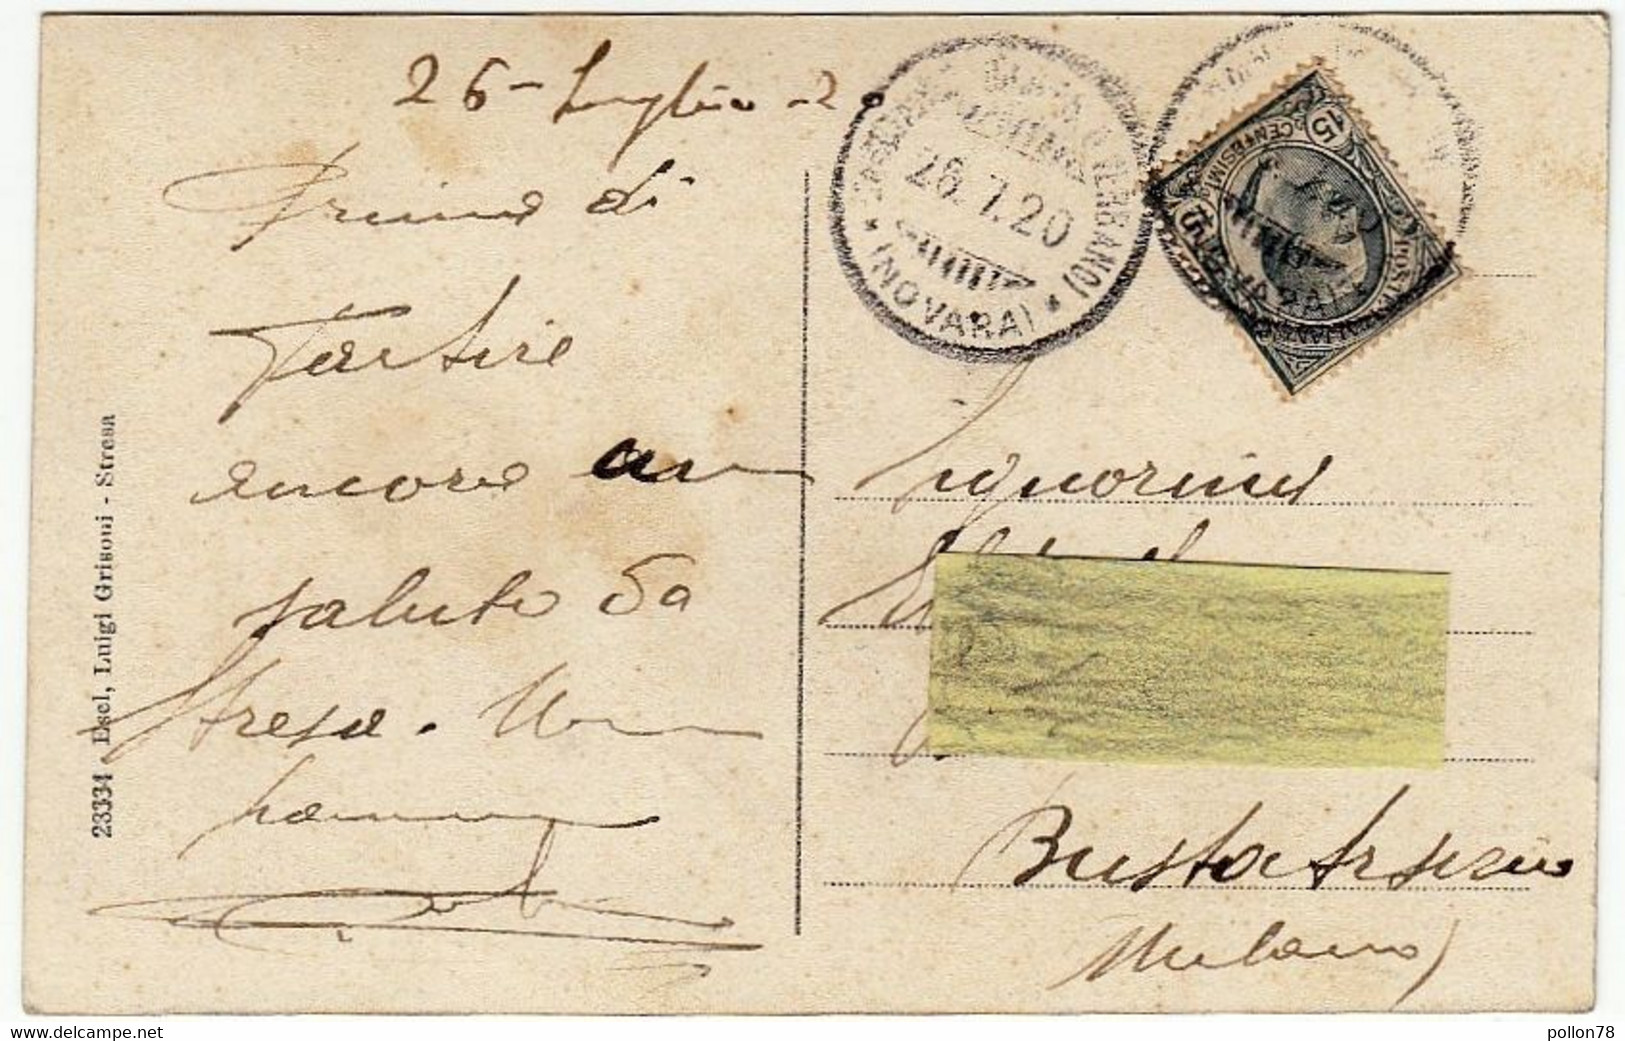 26 - Luglio - 20
Prima di
Partire
ancora un
saluto da
Stresa.
23334 Escl. Luigi Grisoni - Stresa
26.7.20
(NOVARA)
15
CENTESIMI
POSTE ITALIANE
15
Signorina
Busto Arsizio
Milano)
www.delcampe.net
pollon78